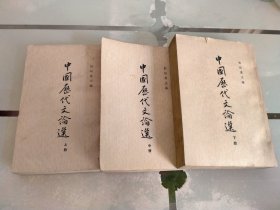 中國歷代文論選
上册
中國歷代文論選
中册
中國歷代文論選
下册